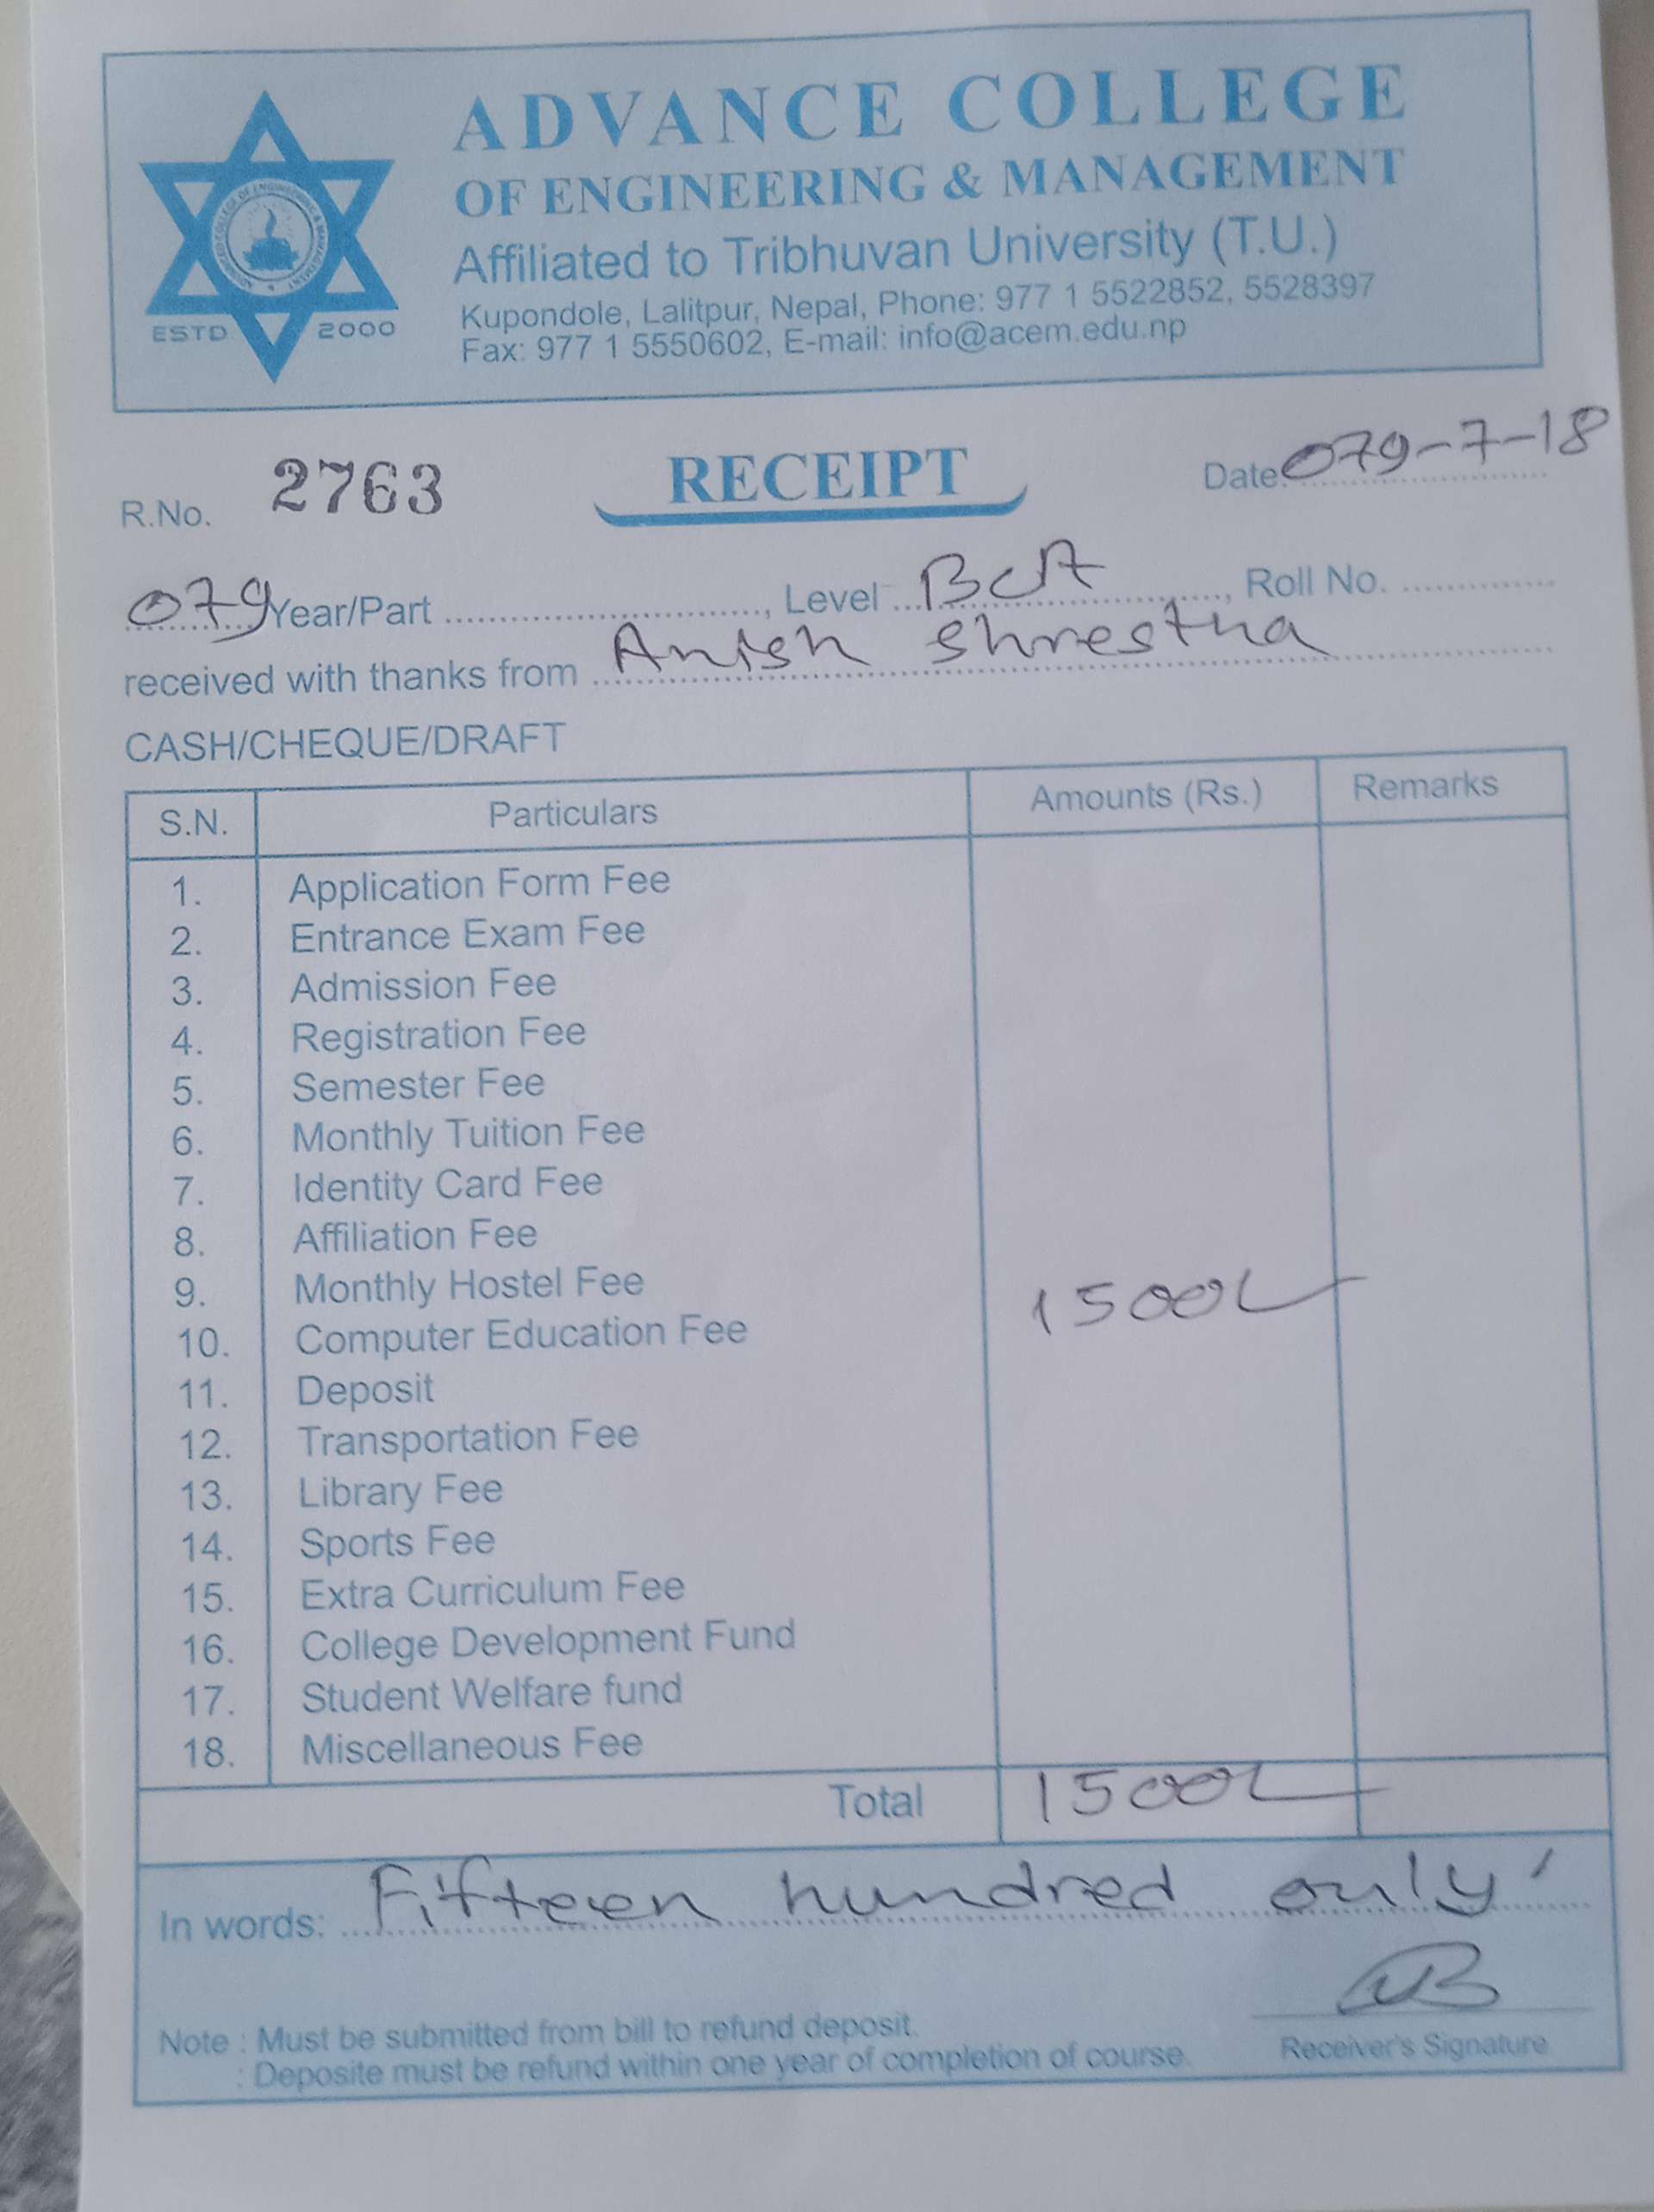 ADVANCE COLLEGE
OF ENGINEERING & MANAGEMENT
Affiliated to Tribhuvan University (T.U.)
Kupondole, Lalitpur, Nepal, Phone: 977 1 5522852, 5528397
Fax: 977 1 5550602, E-mail: info@acem.edu.np
ESTD 2000
R.No. 2763 RECEIPT Date: 079-7-18
079 Year/Part ............, Level BCA, Roll No. ............
received with thanks from Anish Shrestha
CASH/CHEQUE/DRAFT
S.N. Particulars Amounts (Rs.) Remarks
1. Application Form Fee
2. Entrance Exam Fee
3. Admission Fee
4. Registration Fee
5. Semester Fee
6. Monthly Tuition Fee
7. Identity Card Fee
8. Affiliation Fee
9. Monthly Hostel Fee 1500/-
10. Computer Education Fee
11. Deposit
12. Transportation Fee
13. Library Fee
14. Sports Fee
15. Extra Curriculum Fee
16. College Development Fund
17. Student Welfare fund
18. Miscellaneous Fee
Total 1500/-
In words: Fifteen hundred only
Note : Must be submitted from bill to refund deposit.
: Deposite must be refund within one year of completion of course.
Receiver's Signature